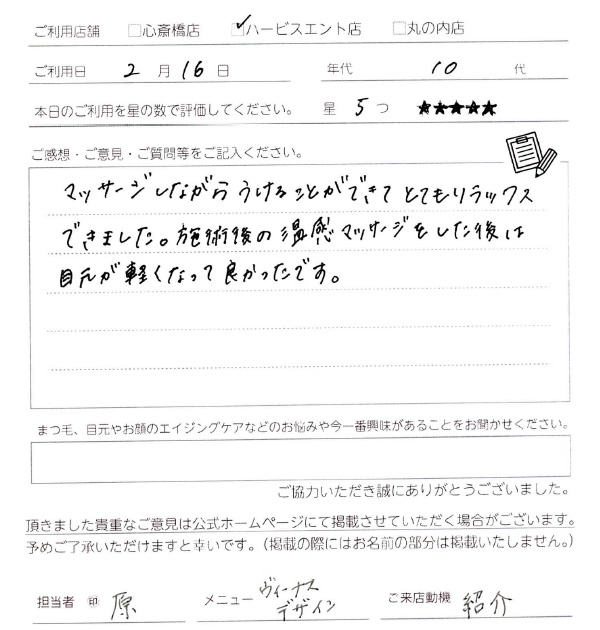 ご利用店舗 □心斎橋店 ☑ハービスエント店 □丸の内店
ご利用日 2 月 16 日 年代 10 代
本日のご利用を星の数で評価してください。 星 5 つ ★★★★★
ご感想・ご意見・ご質問等をご記入ください。
マッサージしながらうけることができて とてもリラックス
できました。施術後の温感マッサージをした後は
目元が軽くなって良かったです。
まつ毛、目元やお顔のエイジングケアなどのお悩みや今一番興味があることをお聞かせください。
ご協力いただき誠にありがとうございました。
頂きました貴重なご意見は公式ホームページにて掲載させていただく場合がございます。
予めご了承いただけますと幸いです。（掲載の際にはお名前の部分は掲載いたしません。）
担当者 ㊞ 原 メニュー ヴィーナスデザイン ご来店動機 紹介